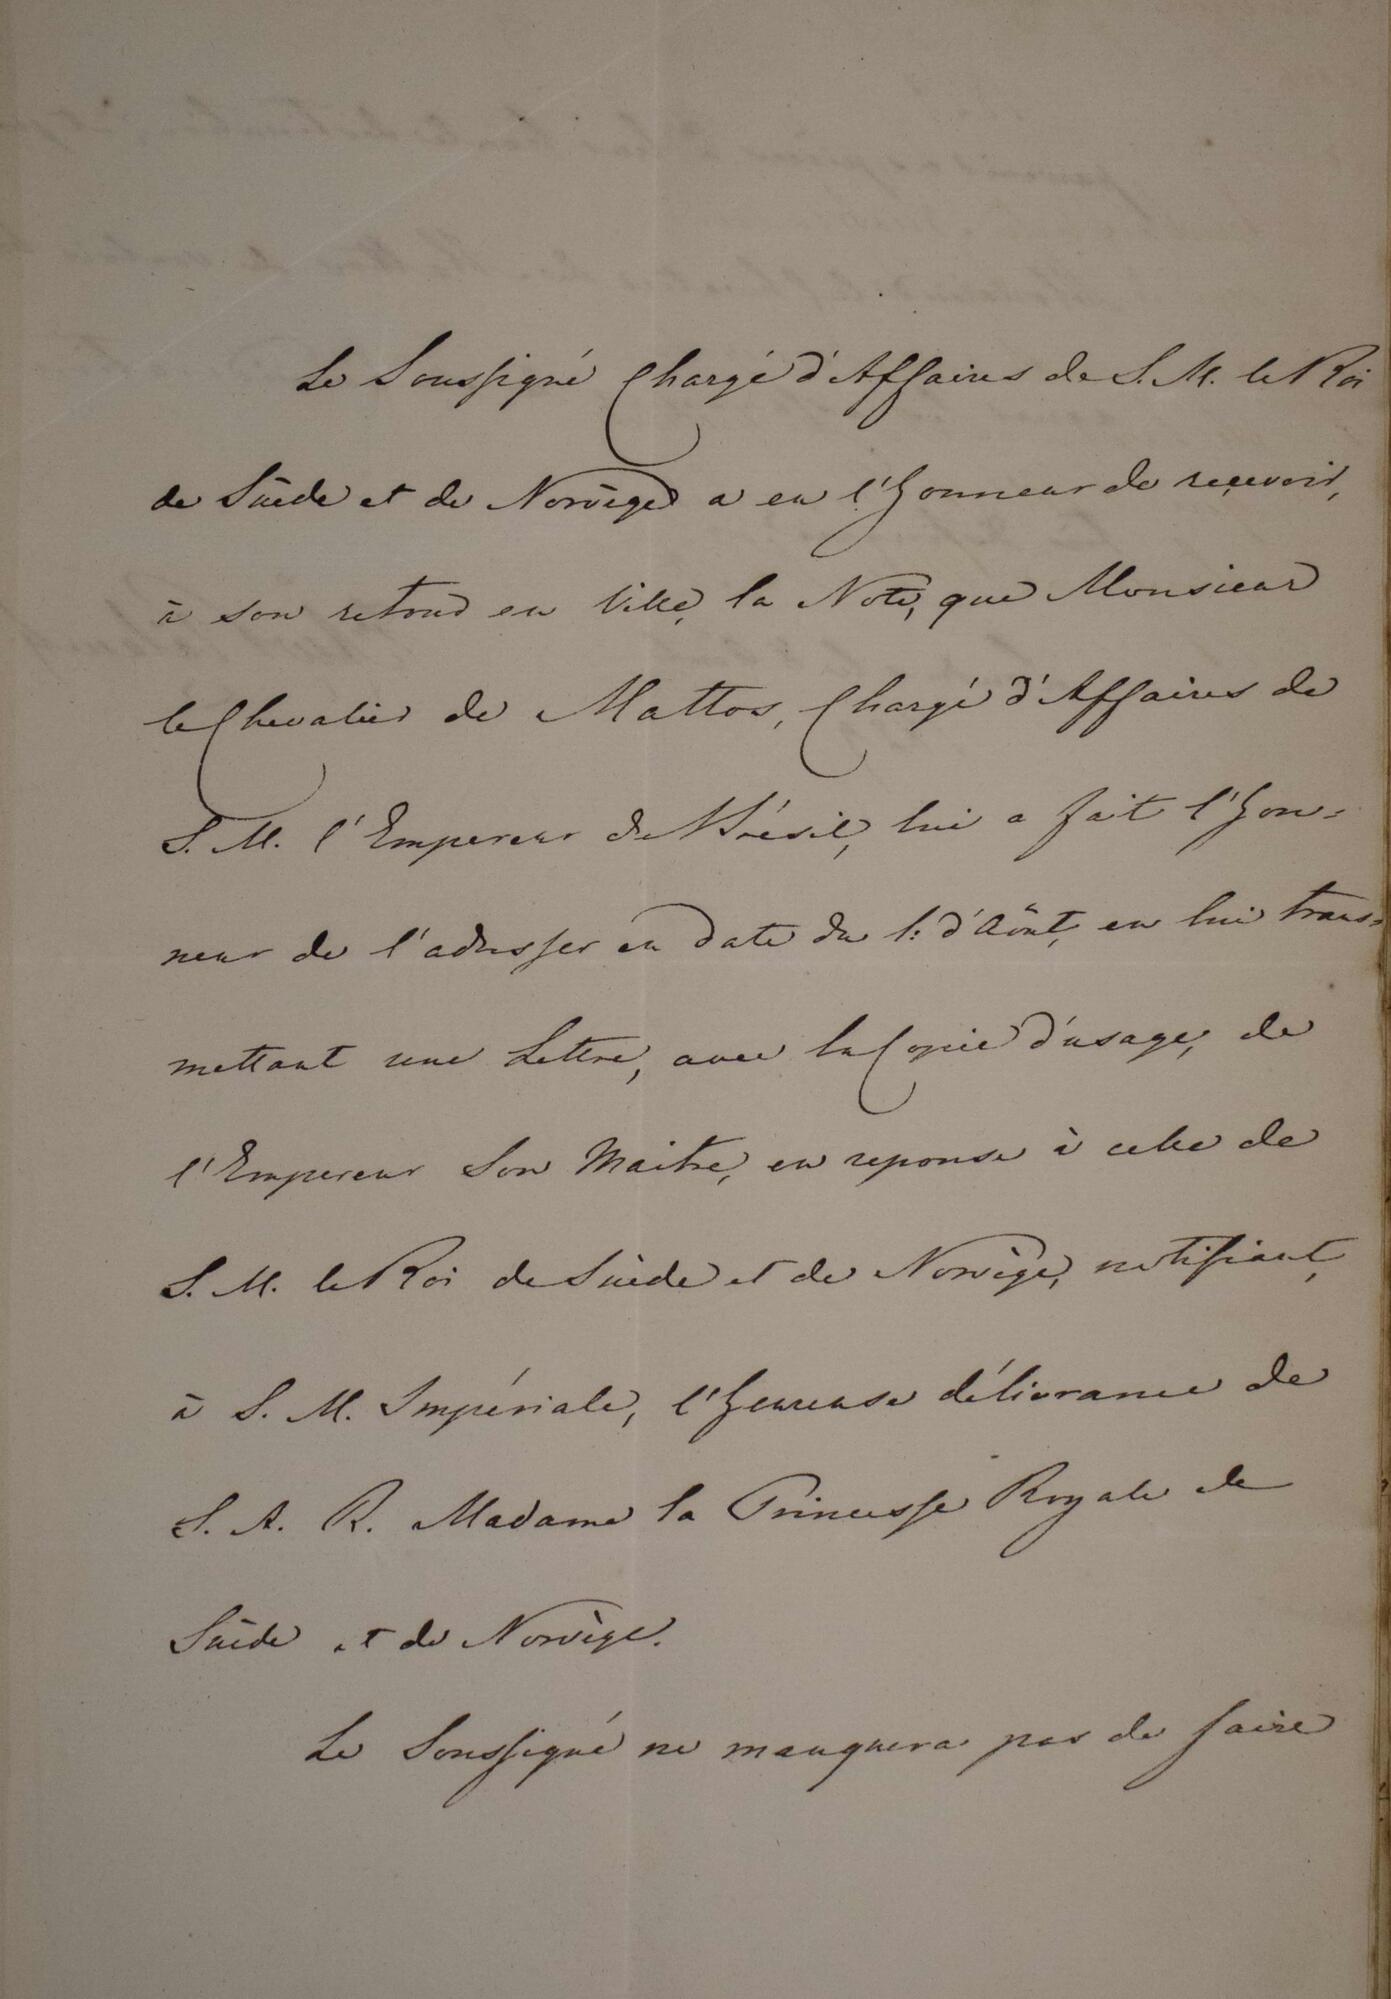 Le Soussigné Chargé d'Affaires de S. M. le Roi
de Suède et de Norvège a eu l'honneur de reçevoir,
à son retour en Ville, la Note, que Monsieur
le Chevalier de Mattos, Chargé d'Affaires de
S. M. l'Empereur du Brésil, lui a fait l'hon=
neur de l'adresser en date du 1: d'Août, en lui trans=
mettant une Lettre, avec la Copie d'usage, de
l'Empereur Son Maitre, en reponse à celle de
S. M. le Roi de Suède et de Norvège, notifiant,
à S. M. Impériale, l'heureuse délivrance de
S. A. R. Madame la Princesse Royale de
Suède et de Norvège.
Le Soussigné ne manquera pas de faire